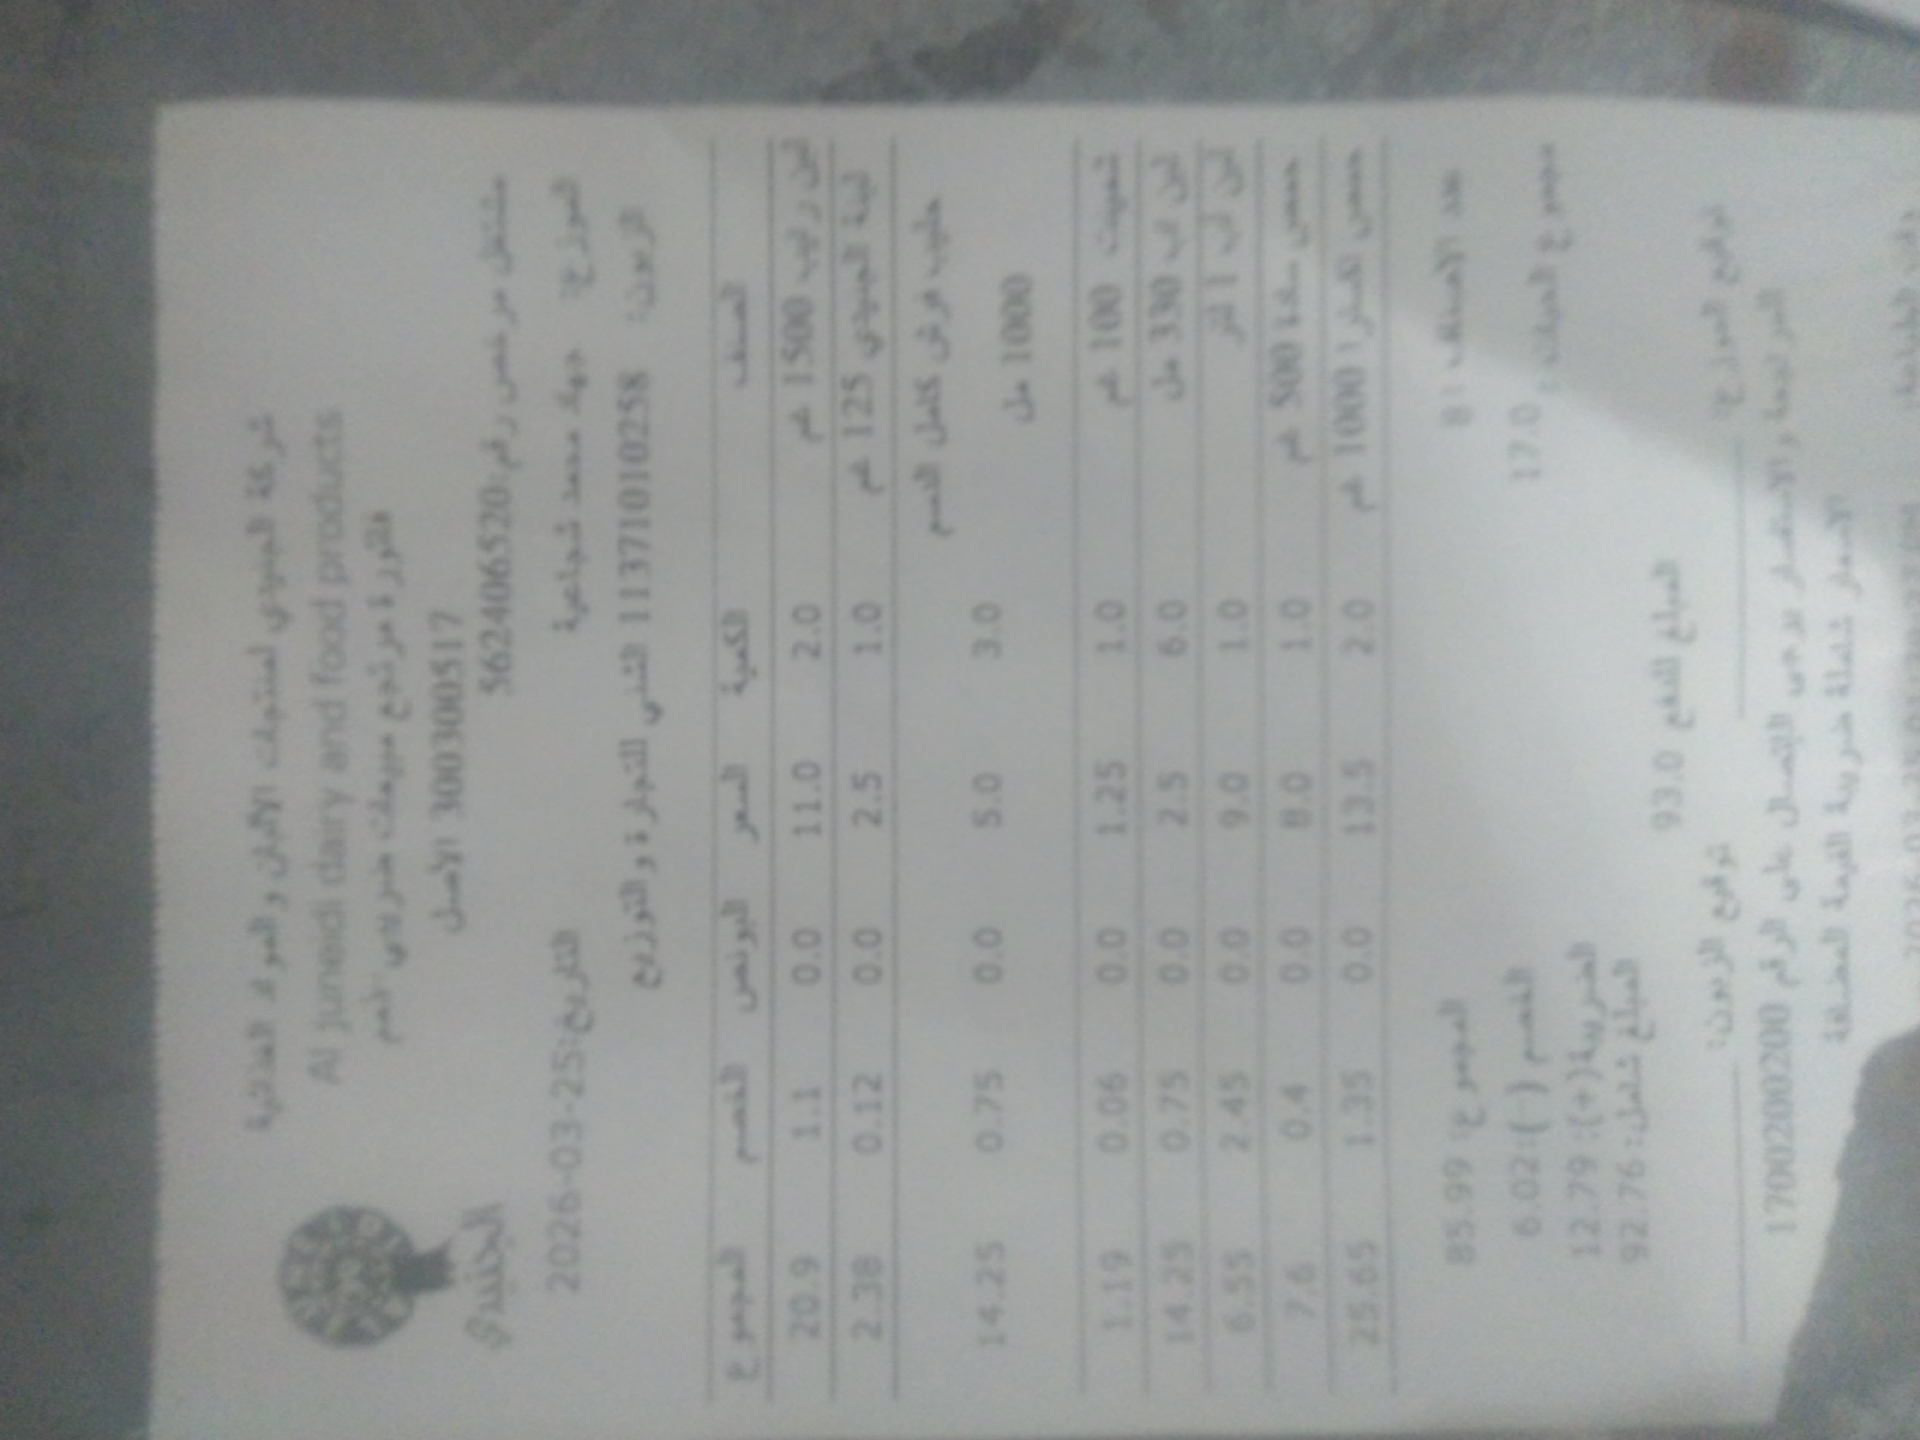 الجنيدي
شركة الجنيدي لمنتجات الألبان والمواد الغذائية
Al Juneidi dairy and food products
فاتورة مرتجع مبيعات ضريبي
3003000517 الأصل
مشتغل مرخص رقم:562406520
الموزع: جهاد محمد شجاعية التاريخ:2026-03-25
الزبون: 1137101010258 للتجارة والتوزيع
الصنف الكمية السعر البونص الخصم المجموع
لبن رايب 1500 غم 2.0 11.0 0.0 1.1 20.9
لبنة الجنيدي 125 غم 1.0 2.5 0.0 0.12 2.38
حليب فرش كامل الدسم 1000 مل 3.0 5.0 0.0 0.75 14.25
شمينت 100 غم 1.0 1.25 0.0 0.06 1.19
لبن اب 330 مل 6.0 2.5 0.0 0.75 14.25
لبن اب 1 لتر 1.0 9.0 0.0 2.45 6.55
حمص سادة 500 غم 1.0 8.0 0.0 0.4 7.6
حمص اكسترا 1000 غم 2.0 13.5 0.0 1.35 25.65
عدد الاصناف : 8 المجموع: 85.99
مجموع الحبات : 17.0 الخصم (-):6.02
الضريبة(+): 12.79
المبلغ شامل: 92.76
المبلغ للدفع 93.0
توقيع الموزع: توقيع الزبون:
للمراجعة والاستفسار يرجى الإتصال على الرقم 1700200200
الاسعار شاملة ضريبة القيمة المضافة
وقت الطباعة: